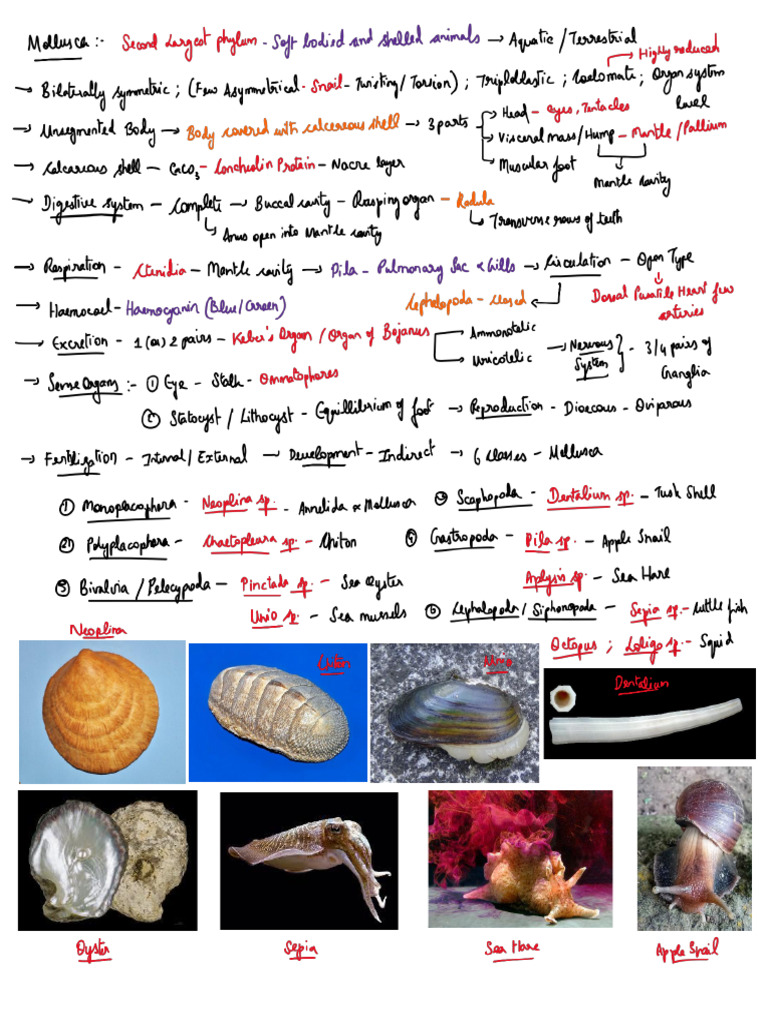 Mollusca :- Second Largest phylum - Soft bodied and shelled animals → Aquatic / Terrestrial
→ Highly reduced
→ Bilaterally symmetric ; (Few Asymmetrical - Snail - Twisting / Torsion) ; Triploblastic ; Coelomate ; Organ system level
→ Unsegmented Body → Body covered with calcareous shell → 3 parts
→ Head - eyes, Tentacles
→ Visceral mass / Hump - Mantle / Pallium
→ Muscular foot
Mantle cavity
→ Calcareous shell - CaCO3 - Conchiolin Protein - Nacre layer
→ Digestive system - Complete → Buccal cavity - Rasping organ - Radula
↳ Anus open into Mantle cavity
↳ Transverse rows of teeth
→ Respiration - Ctenidia - Mantle cavity → Pila - Pulmonary Sac & Gills → Circulation - Open Type
→ Haemocoel - Haemocyanin (Blue/Green)
Cephalopoda - closed
Dorsal Pulsatile Heart few arteries
→ Excretion - 1 (or) 2 pairs - Keber's Organ / Organ of Bojanus
Ammonotelic
Uricotelic
→ Nervous System } - 3/4 pairs of Ganglia
→ Sense Organs :- ① Eye - Stalk - Ommatophores
② Statocyst / Lithocyst - Equillibrium of foot → Reproduction - Dioecous - Oviparous
→ Fertilization - Internal / External → Development - Indirect → 6 Classes - Mollusca
① Monoplacophora - Neoplina sp. - Annelida & Mollusca
④ Scaphopoda - Dentalium sp. - Tusk Shell
② Polyplacophora - Chaetopleura sp - Chiton
⑤ Gastropoda - Pila sp. - Apple Snail
③ Bivalvia / Pelecypoda - Pinctada sp. - Sea Oyster
Aplysia sp - Sea Hare
Unio sp. - Sea mussels
⑥ Cephalopoda / Siphonopoda - Sepia sp. - Cuttle fish
Octopus ; Loligo sp. - Squid
Neoplina
Chiton
Unio
Dentalium
Oyster
Sepia
Sea Hare
Apple Snail